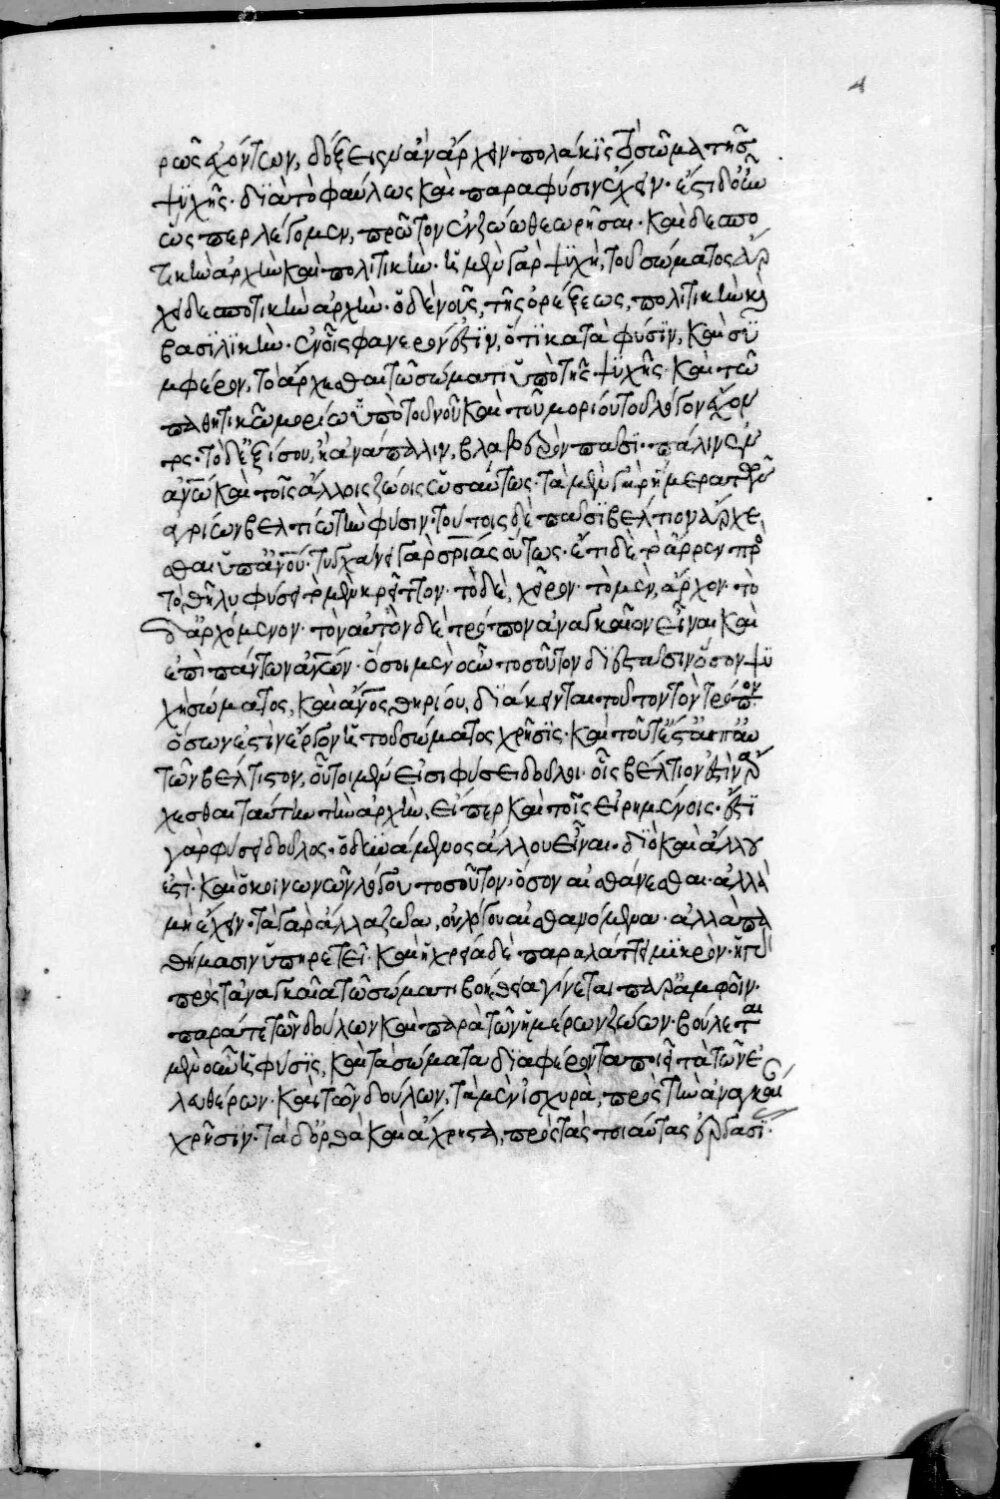 4
ρῶς ἐχόντων, δόξειεν ἂν ἄρχειν πολάκϊς τὸ σῶμα τῆς
ψϋχῆς· δϊὰ τὸ φαύλως καὶ παρὰ φύσιν ἔχειν· ἔστι δ' οὖν
ὥσπερ λέγομεν, πρῶτον ἐν ζώῳ θεωρῆσαι· καὶ δεσπο
τικὴν ἀρχὴν καὶ πολιτικήν· ἡ μὲν γὰρ ψϋχὴ, τοῦ σώματος ἄρ
χει δεσποτικὴν ἀρχήν· ὁ δὲ νοῦς, τῆς ὀρέξεως, πολιτικὴν καὶ
βασϊλϊκήν· ἐν οἷς φανερόν ἐστϊν, ὅτϊ κατὰ φύσϊν, καὶ συ
μφέρον, τὸ ἄρχεσθαι τῶ σώματι ὑπὸ τῆς ψϋχῆς· καὶ τῶ
παθητικῶ μορίω ὑπὸ τοῦ νοῦ καὶ τοῦ μορίου τοῦ λόγον ἔχον
τος· τὸ δ' ἐξ ἴσου, ἢ ἀνάπαλιν, βλαβερὸν πᾶσϊ· πάλιν ἐν
ἀνω καὶ τοῖς ἄλλοις ζώοις ὡσαύτως· τὰ μὲν γὰρ ἥμερα τῶν
ἀγρίων βελτίω τὴν φύσιν· τούτοις δὲ πᾶσϊ βέλτιον ἄρχε
σθαι ὑπ' ἀνου· τυγχάνει γὰρ σριας οὕτως· ἔτι δὲ τὸ ἄρρεν πρὸς
τὸ θῆλυ φύσει τὸ μὲν κρεῖττον· τὸ δὲ, χεῖρον· τὸ μὲν, ἄρχον· τὸ
δ' ἀρχόμενον· τὸν αὐτὸν δὲ τρόπον ἀναγκαῖον εἶναι καὶ
ἐπὶ πάντων ἀνων· ὅσοι μὲν οὖν τοσοῦτον διεστᾶσιν ὅσον ψϋ
χὴ σώματος, καὶ ἄνος θηρίου, δϊάκεινται τοῦτον τὸν τρόπον
ὅσων ἐστὶν ἔργον ἡ τοῦ σώματος χρῆσϊς· καὶ τοῦτ' ἔστ' ἀπ' αὐ
τῶν βέλτιστον, οὗτοι μὲν εἰσὶ φύσει δοῦλοι· οἷς βέλτιον ἐστὶν ἄρ
χεσθαι ταύτην τὴν ἀρχὴν, εἴπερ καὶ τοῖς εἰρημένοις· ἔστϊ
γὰρ φύσει δοῦλος, ὁ δυνάμενος ἄλλου εἶναι· δϊὸ καὶ ἄλλου
ἐστί· καὶ ὁ κοινωνῶν λόγου τοσοῦτον, ὅσον αἰσθάνεσθαι· ἀλλὰ
μὴ ἔχειν· τὰ γὰρ ἄλλα ζῶα, οὐ λόγου αἰσθανόμενα· ἀλλὰ πα
θήμασιν ὑπηρετεῖ· καὶ ἡ χρεία δὲ παραλάττει μϊκρὸν· ἡ γὰρ
πρὸς τἀναγκαῖα τῶ σώματι βοήθεια γίνεται παρ' ἀμφοῖν·
παρά τε τῶν δούλων καὶ παρὰ τῶν ἡμέρων ζώων· βούλεται
μὲν οὖν ἡ φύσϊς, καὶ τὰ σώματα δϊαφέροντα ποιεῖν τὰ τῶν ἐ
λευθέρων· καὶ τῶν δούλων, τὰ μὲν ἰσχυρὰ, πρὸς τὴν ἀναγκαίαν
χρῆσιν· τὰ δ' ὀρθὰ καὶ ἄχρηστα, πρὸς τὰς τοιαύτας ἐργασϊ·